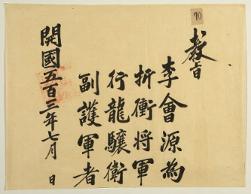 教旨
李會源為
折衝將軍
行龍驤衛
副護軍者
開國五百三年七月 日